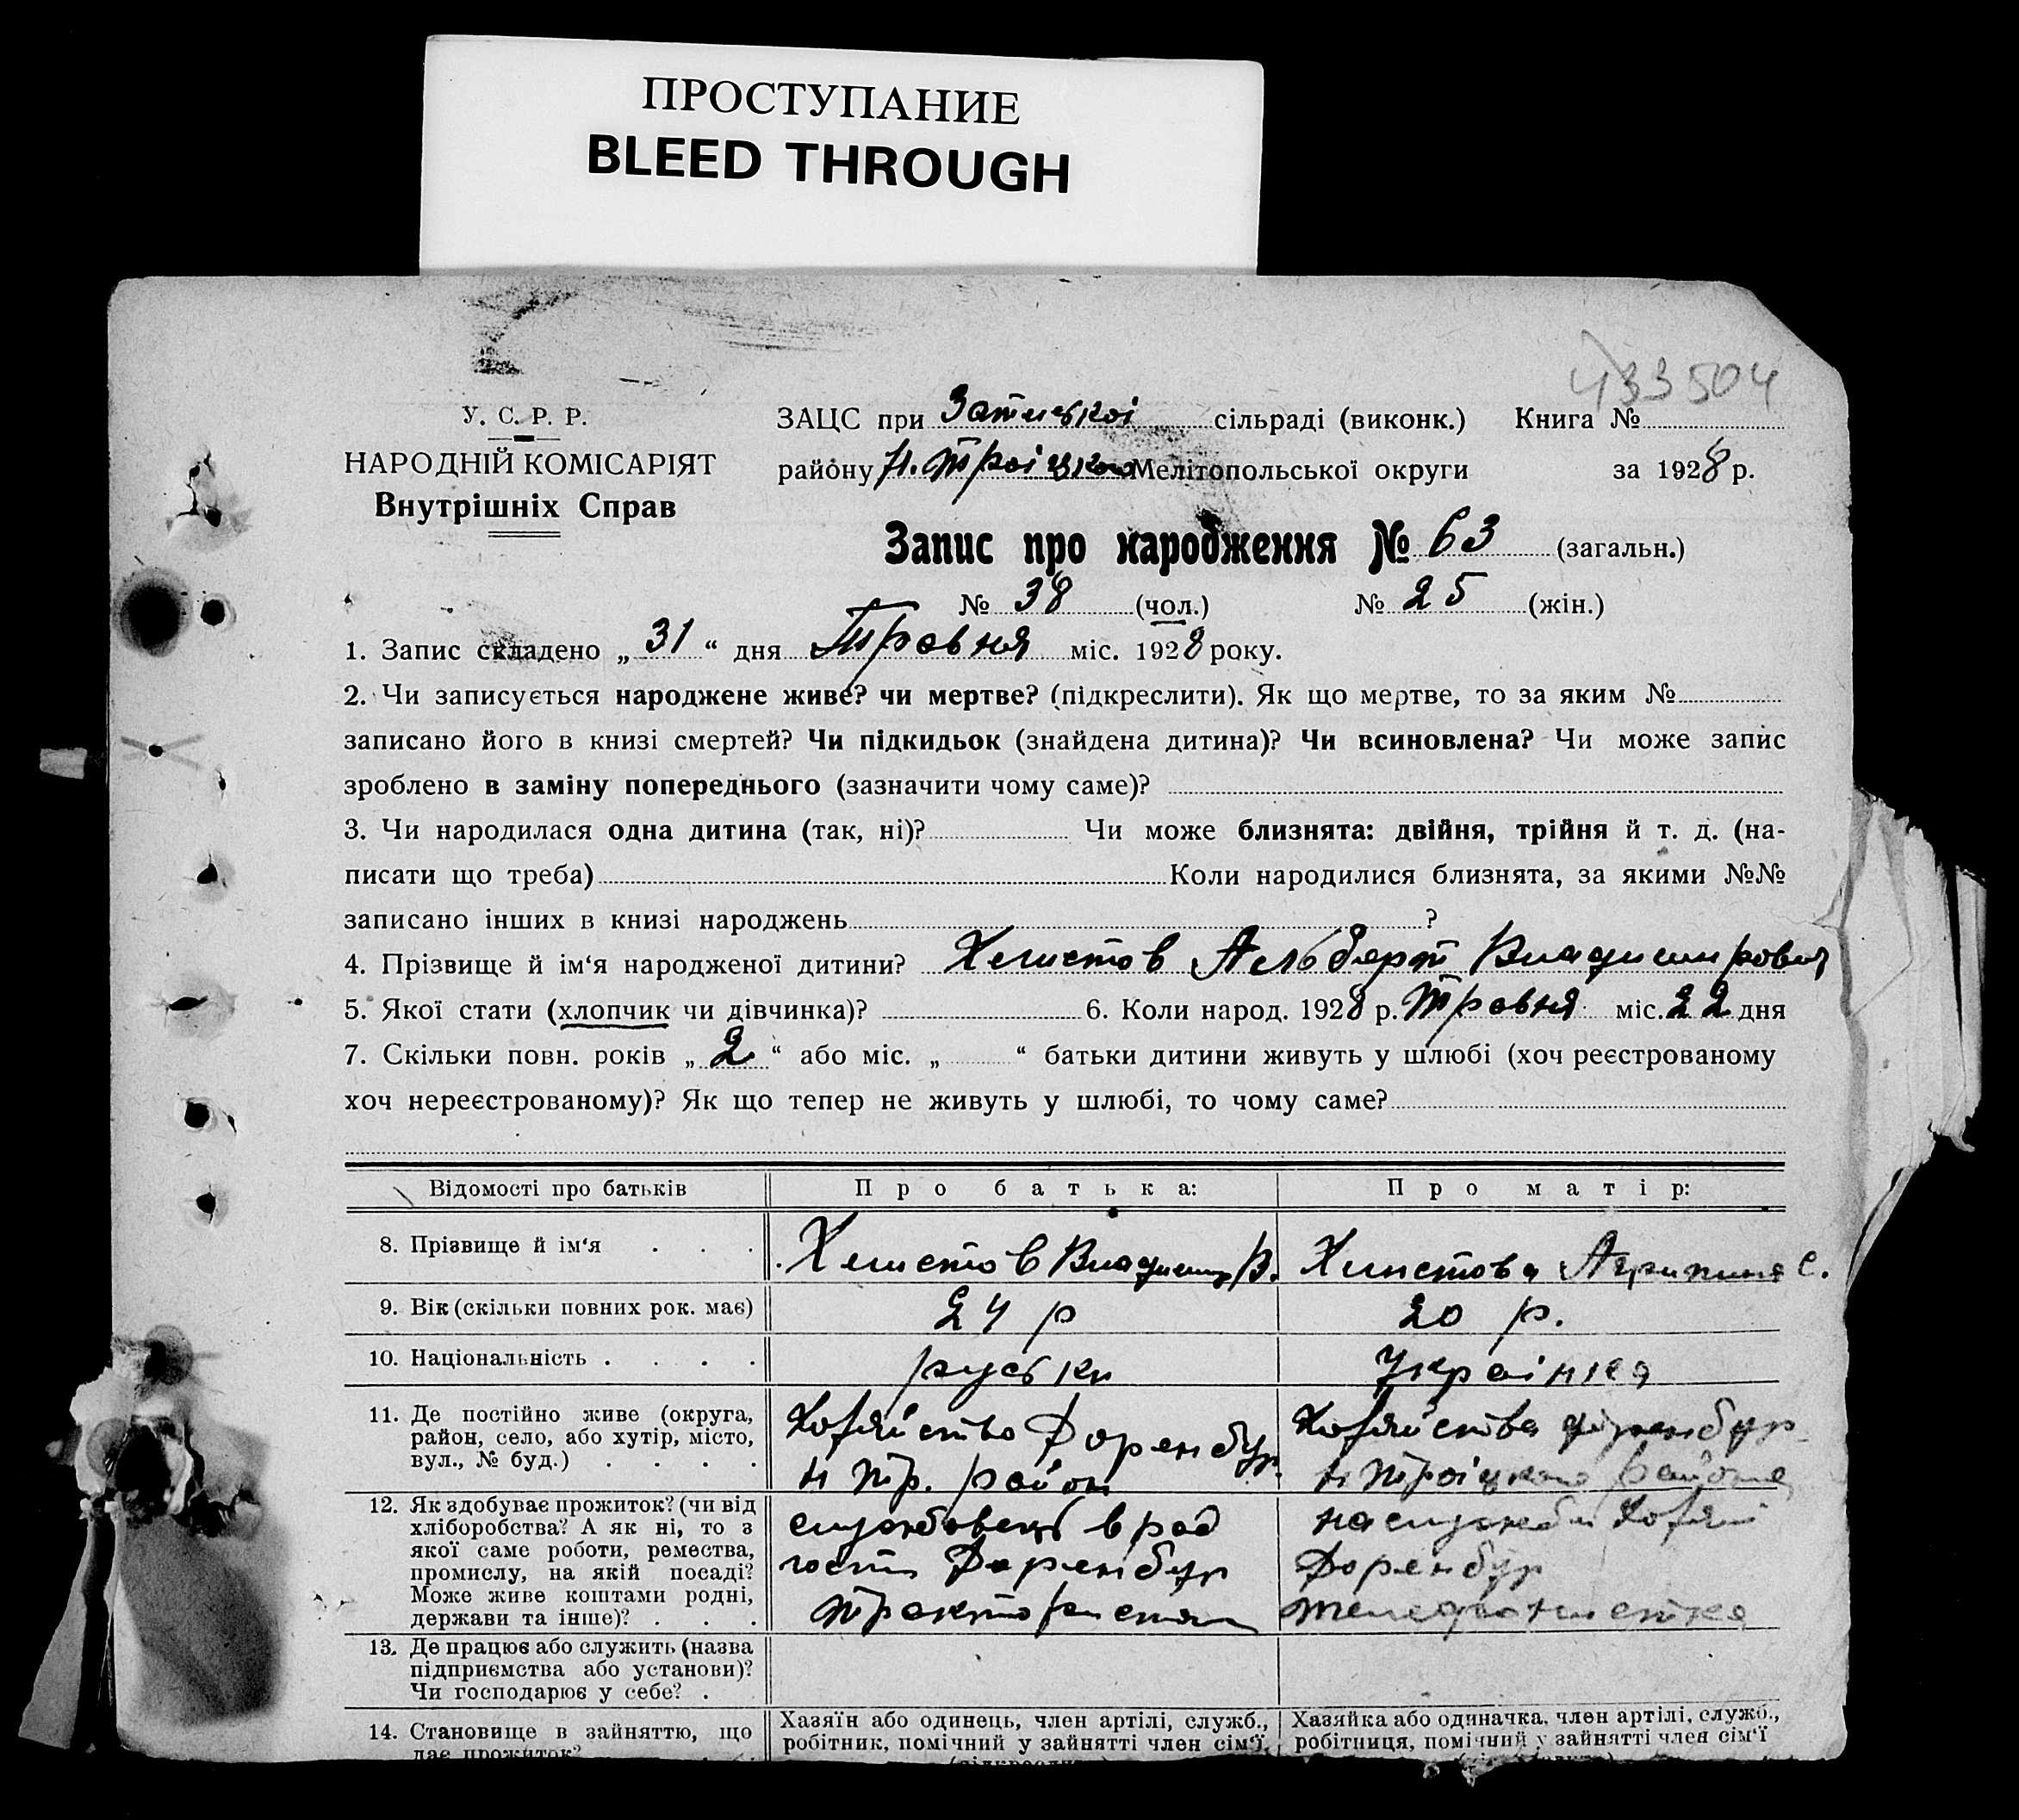 ПРОСТУПАНИЕ
BLEED THROUGH
433504
У. С. Р. Р.
НАРОДНІЙ КОМІСАРІЯТ
Внутрішніх Справ
ЗАЦС при сільраді (виконк.) Книга №
району Н. Троіцького Мелітопольської округи за 1928 р.
Запис про народження № 63 (загальн.)
№ 38 (чол.) № 25 (жін.)
1. Запис складено „31“ дня Травня міс. 1928 року.
2. Чи записується народжене живе? чи мертве? (підкреслити). Як що мертве, то за яким №
записано його в книзі смертей? Чи підкидьок (знайдена дитина)? Чи всиновлена? Чи може запис
зроблено в заміну попереднього (зазначити чому саме)?
3. Чи народилася одна дитина (так, ні)? Чи може близнята: двійня, трійня й т. д. (на-
писати що треба) Коли народилися близнята, за якими №№
записано інших в книзі народжень ?
4. Прізвище й ім‘я народженої дитини? Хлистов Альберт Владимирович
5. Якої стати (хлопчик чи дівчинка)? 6. Коли народ. 1928 р. Травня міс. 22 дня
7. Скільки повн. років „2“ або міс. „ “ батьки дитини живуть у шлюбі (хоч реєстрованому
хоч нереєстрованому)? Як що тепер не живуть у шлюбі, то чому саме?
Відомості про батьків Про батька: Про матір:
8. Прізвище й ім‘я . . . Хлистов Владимир В. Хлистова Агрипина С.
9. Вік (скільки повних рок. має) 24 р 20 р.
10. Національність . . . . руськи Украінка
11. Де постійно живе (округа,
район, село, або хутір, місто,
вул., № буд.) . . . .
Хозяйство Доренбур.
Н Тр. район
Хозяйства Доренбур
Н Троіцкого района
12. Як здобуває прожиток? (чи від
хліборобства? А як ні, то з
якої саме роботи, ремества,
промислу, на якій посаді?
Може живе коштами родні,
держави та інше)? . . .
службовець в рад
госп Доренбур
трактористом
на службі Хозяй
Доренбур
телефонистка
13. Де працює або служить (назва
підприємства або установи)?
Чи господарює у себе? .
14. Становище в зайняттю, що
дає прожиток?
Хазяїн або одинець, член артілі, служб.,
робітник, помічний у зайнятті член сім‘ї
Хазяйка або одиначка, член артілі, служб.,
робітниця, помічний у зайнятті член сім‘ї